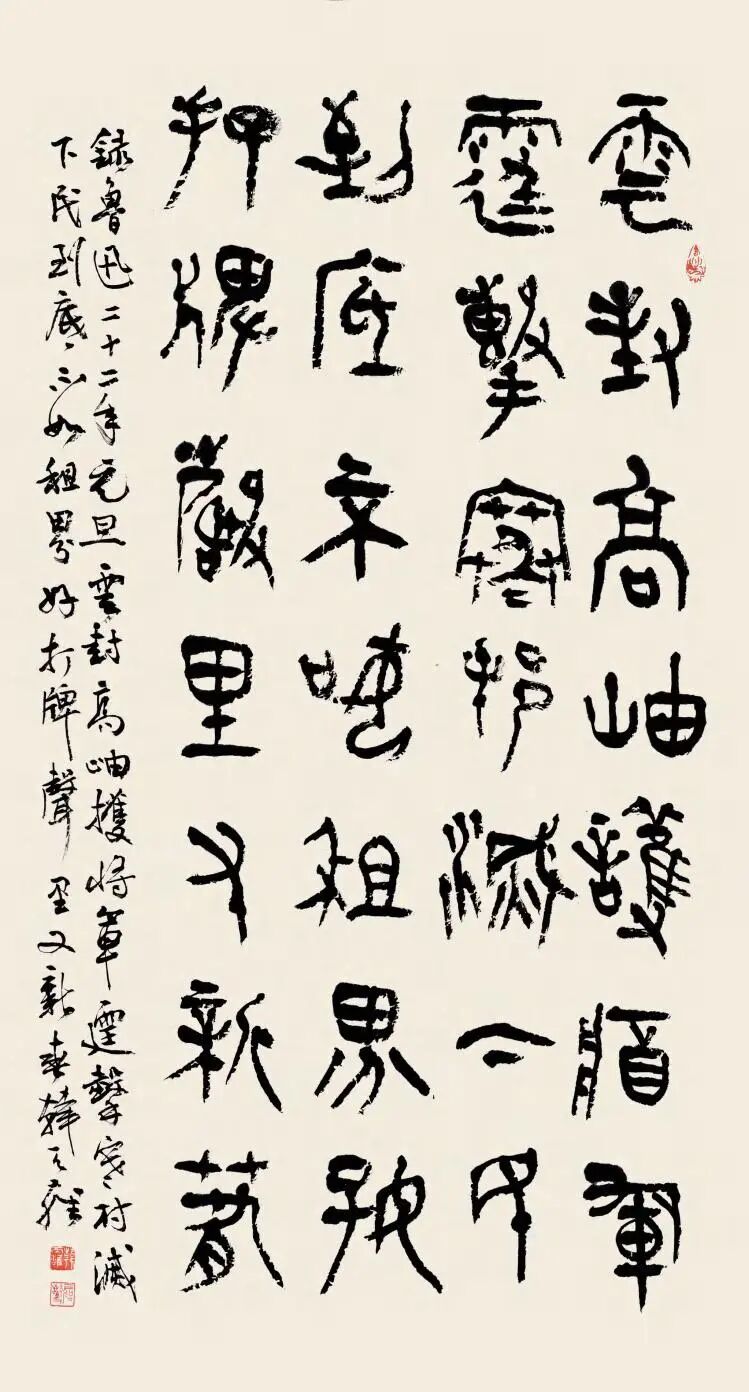 雲封高岫護將軍
霆擊寒村滅下民
到底不如租界好
打牌聲里又新春
錄魯迅二十二年元旦雲封高岫護將軍霆擊寒村滅
下民到底不如租界好打牌聲里又新春韓天雍